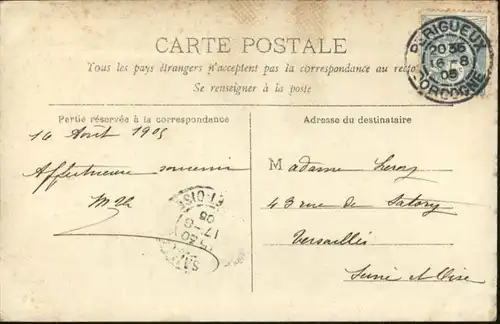 CARTE POSTALE
Tous les pays étrangers n'acceptent pas la correspondance au recto
Se renseigner à la poste
PÉRIGUEUX
20 35
16 8
05
DORDOGNE
Partie réservée à la correspondance
Adresse du destinataire
16 Août 1905
Affectueux souvenir
Madame Leroy
43 rue de Satory
Versailles
Seine et Oise
ET-OISE
05
17 - 8